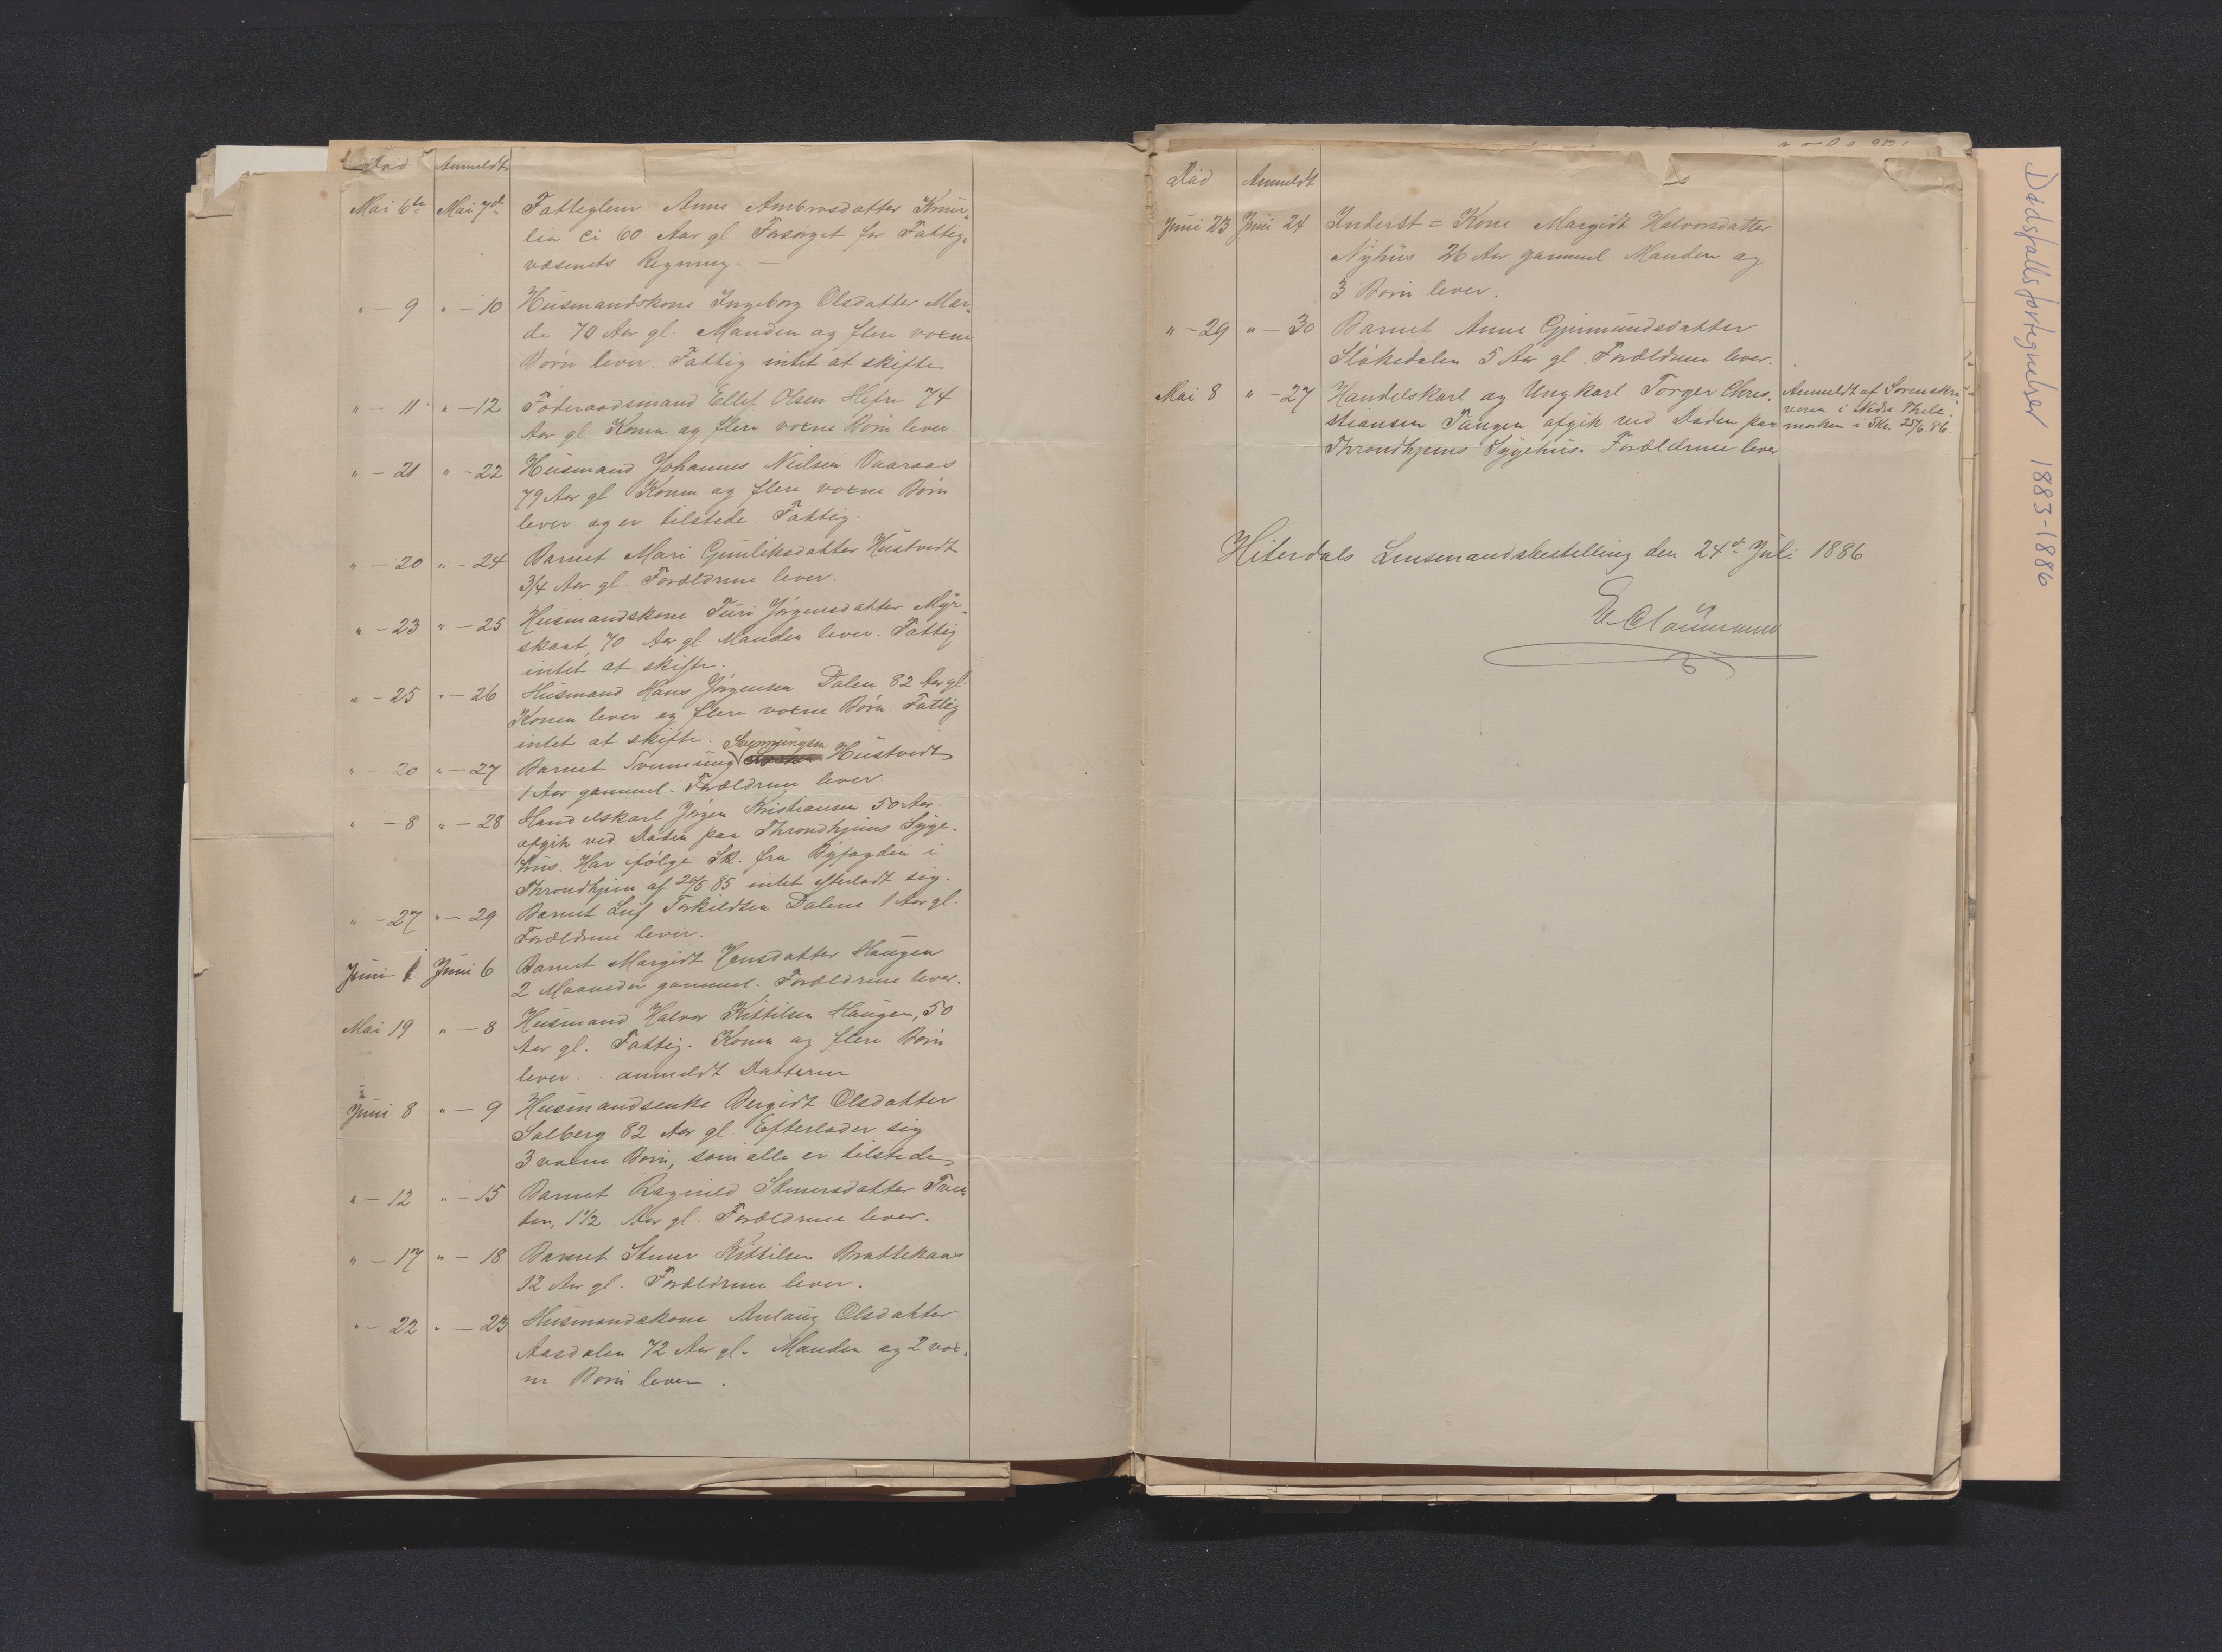 Død Anmeldt
Mai 6te Mai 7de Fatteglem Anne Ambrosdatter Knur-
lia ci 60 Aar gl Forsørget for Fattig-
væsenets Regning. —
" — 9 " — 10 Husmandskone Ingeborg Olsdatter Mær-
de 70 Aar gl. Manden og flere voxne
Børn lever. Fattig intet at skifte
" — 11 " — 12 Føderaadsmand Ellef Olsen Hefre 74
Aar gl. Konen og flere voxne Børn lever
" — 21 " — 22 Husmand Johannes Nielsen Vaaraas
79 Aar gl. Konen og flere voxne Børn
lever og er tilstede. Fattig.
" — 20 " — 24 Barnet Mari Gunliksdatter Hustvedt
3/4 Aar gl. Forældrene lever.
" — 23 " — 25 Husmandskone Turi Jørgensdatter Myr-
skaat, 70 Aar gl. Manden lever. Fattig
intet at skifte.
" — 25 " — 26 Husmand Hans Jørgensen Dalen 82 Aar gl.
Konen lever og flere voxne Børn Fattig
intet at skifte. Svennungsen
" — 20 " — 27 Barnet Svennung Hustvedt
1 Aar gammel. Forældrene lever.
" — 8 " — 28 Handelskarl Jørgen Kristiansen 50 Aar.
afgik ved Døden paa Throndhjems Syge-
hus. Har ifølge Sk. fra Byfogden i
Throndhjem af 20/5 85 intet efterladt sig.
" — 27 " — 29 Barnet Leif Torkildsen Dalene 1 Aar gl.
Forældrene lever.
Juni 1 Juni 6 Barnet Margidt Hansdatter Haugen
2 Maaneder gammel. Forældrene lever.
Mai 19 " — 8 Husmand Halvor Kittilsen Haugen, 50
Aar gl. Fattig. Konen og flere Børn
lever. anmeldt Datteren
Juni 8 " — 9 Husmandsenke Bergidt Olsdatter
Solberg 82 Aar gl. Efterlader sig
3 voxne Børn, som alle er tilstede
" — 12 " — 15 Barnet Ragnild Steenersdatter Tvei-
ten, 1 1/2 Aar gl. Forældrene lever.
" — 17 " — 18 Barnet Steener Kittilsen Brattekaas
12 Aar gl. Forældrene lever.
" — 22 " — 23 Husmandskone Anlaug Olsdatter
Aasdalen 72 Aar gl. Manden og 2 vox-
ne Børn lever.
Død Anmeldt
Juni 23 Juni 24 Inderst = Kone Margidt Halvorsdatter
Nyhus 26 Aar gammel. Manden og
3 Børn lever.
" — 29 " — 30 Barnet Anne Gjermundsdatter
Slåkedalen 5 Aar gl. Forældrene lever.
Mai 8 " — 27 Handelskarl og Ungkarl Torger Chri-
stiansen Tangen afgik ved Døden paa
Throndhjems Sygehus. Forældrene lever
Anmeldt af Sorenskri-
veren i Nedre Thele-
marken i Skr. 25/6. 86.
Hiterdals Lensmandsbestilling den 24de Juli 1886
Dødsfallsfortegnelser 1883-1886